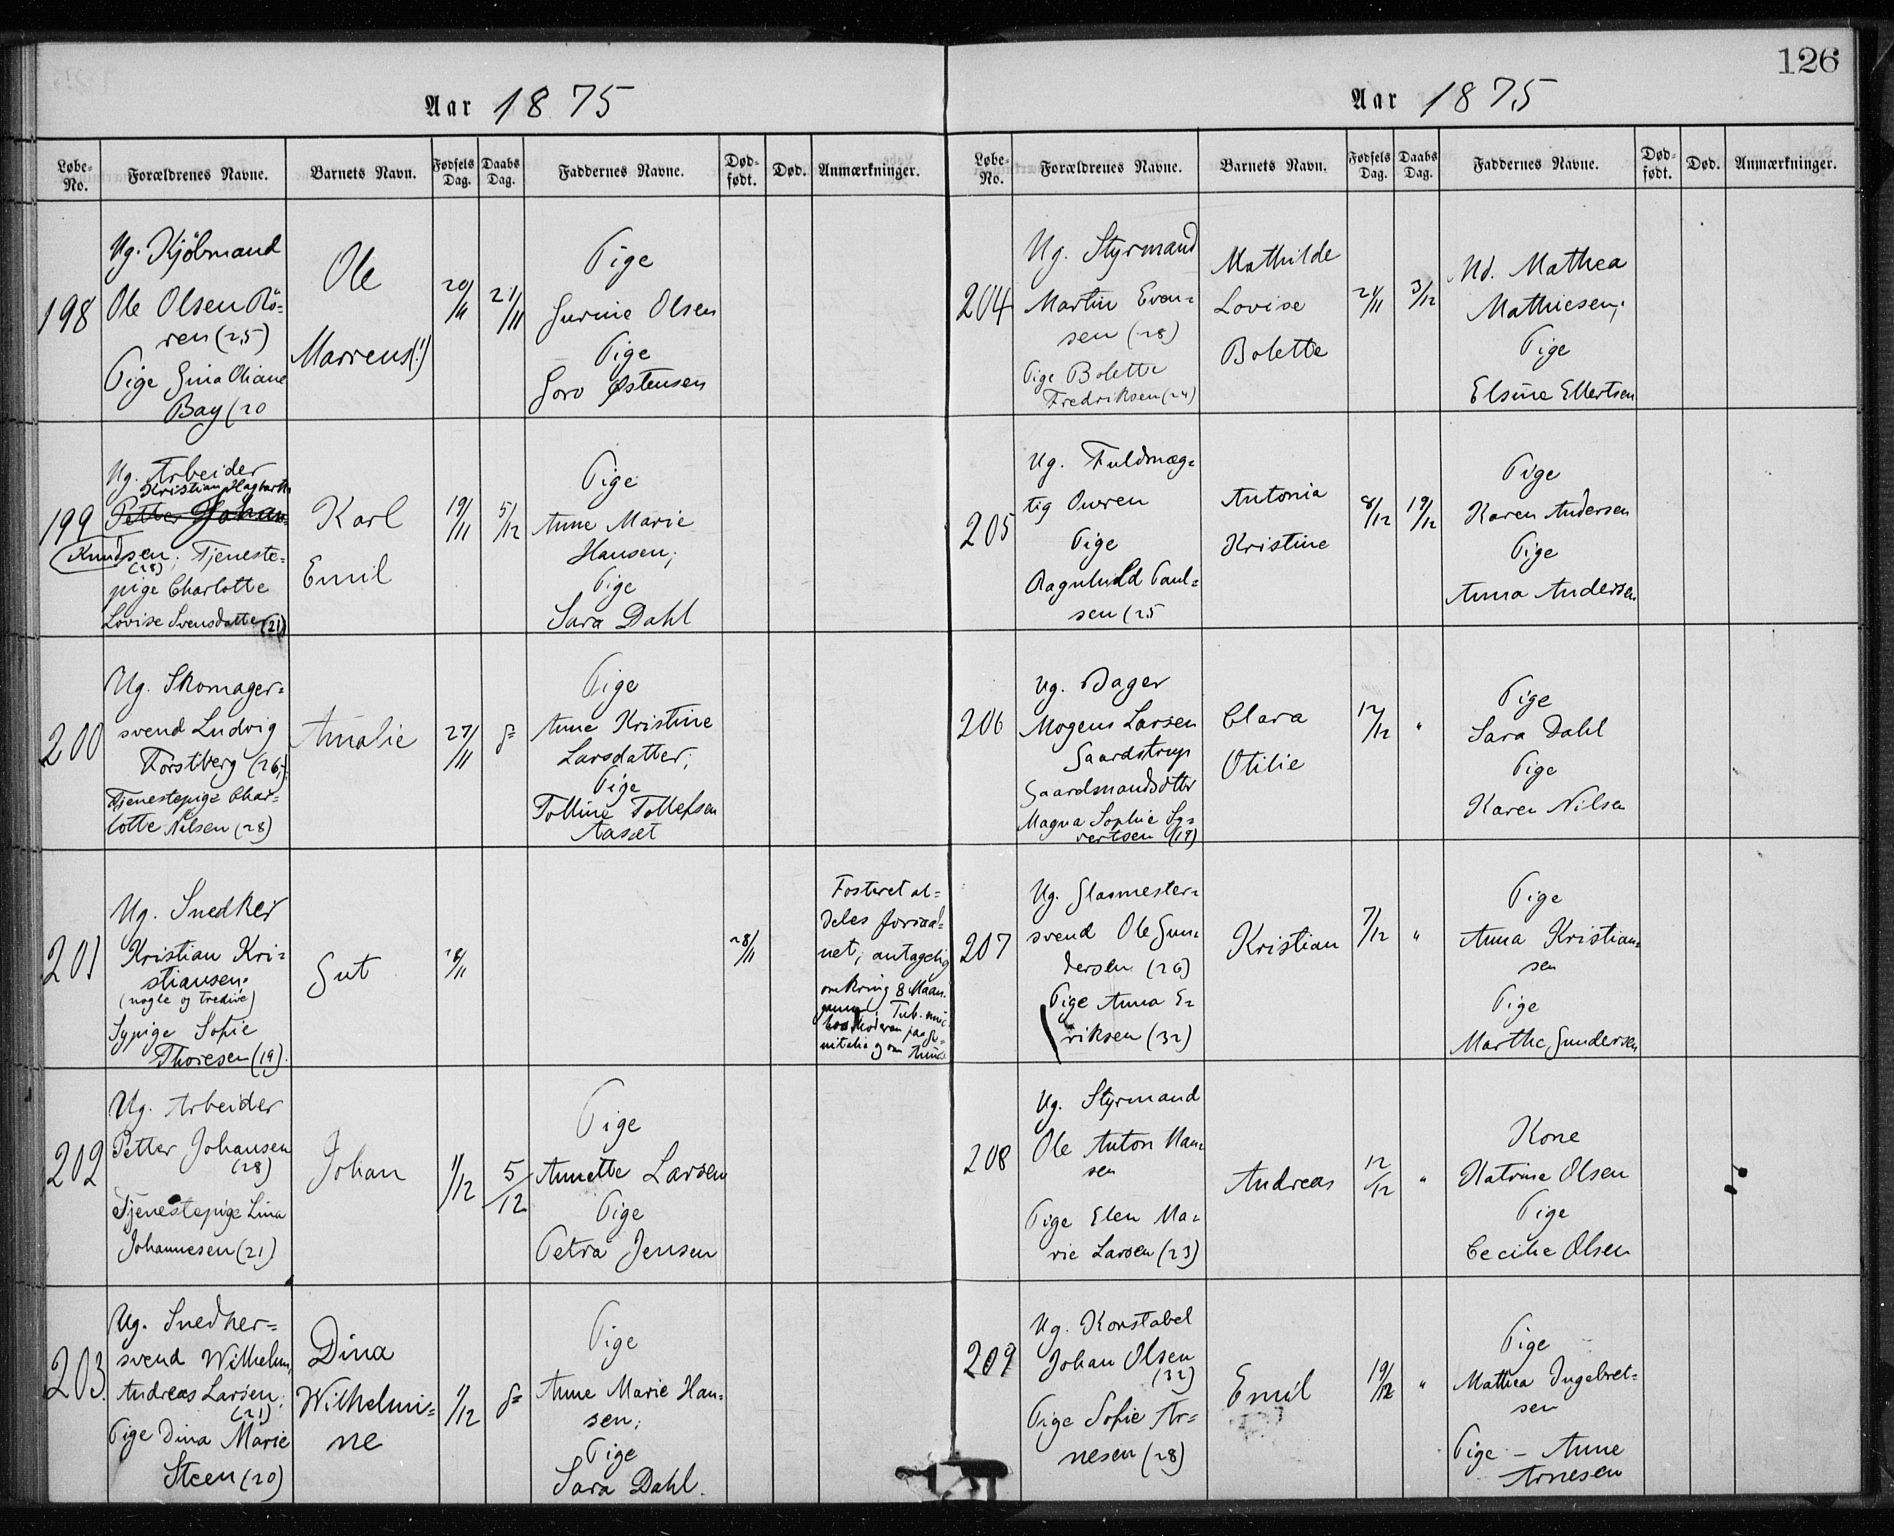 126
Aar 1875
Løbe-No.
Forældrenes Navne.
Barnets Navn.
Fødsels Dag.
Daabs Dag.
Faddernes Navne.
Død-født.
Død.
Anmærkninger.
198
Ug. Kjøbmand
Ole Olsen Rö-
ren (25)
Pige Gina Oliane
Bay (20
Ole
Marrens(!)
20/11
21/11
Pige
Gurine Olsen
Pige
Goro Østensen
199
Ug. Arbeider
Kristian Hagbarth
Petter Johan-
Knudsen; Tjeneste-
(28)
pige Charlotte
Lovise Svensdatter (21)
Karl
Emil
19/11
5/12
Pige
Anne Marie
Hansen;
Pige
Sara Dahl
200
Ug. Skomager-
svend Ludvig
Forstberg (26);
Tjenestepige Char-
lotte Nilsen (28)
Amalie
27/11
Pige
Anne Kristine
Larsdatter;
Pige
Tolline Tollefsen
Aaset
201
Ug. Snedker
Kristian Kri-
stiansen.
(nogle og tredive)
Sypige Sofie
Thoresen (19).
Gut
28/11
Fosteret al-
deles forraad-
net; antagelig
omkring 8 Maan.
202
Ug. Arbeider
Petter Johansen
(28)
Tjenestepige Lina
Johannesen (21)
Johan
1/12
5/12
Pige
Annette Larsen
Pige
Petra Jensen
203.
Ug. Snedker-
svend Wilhelm
Andreas Larsen;
(21)
Pige Dina Marie
Steen (20)
Dina
Wilhelmi-
ne
1/12
Pige
Anne Marie Han-
sen;
Pige
Sara Dahl.
Aar 1875
Løbe-No.
Forældrenes Navne.
Barnets Navn.
Fødsels Dag.
Daabs Dag.
Faddernes Navne.
Død-født.
Død.
Anmærkninger.
204
Ug. Styrmand
Martin Even-
sen (28)
Pige Bolette
Fredriksen (24)
Mathilde
Lovise
Bolette
21/11
3/12
Md. Mathea
Mathiesen;
Pige
Elsine Ellertsen
205
Ug. Fuldmæg-
tig Owren
Pige
Ragnhild Paul-
sen (25
Antonia
Kristine
8/12
19/12
Pige
Karen Andersen
Pige
Anna Andersen
206
Ug. Bager
Mogens Larsen
Gaardstrup
Gaardmandsdotter
Magna Sophie Sy-
vertsen (19)
Clara
Otilie
12/12
"
Pige
Sara Dahl
Pige
Karen Nilsen
207
Ug. Glasmester-
svend Ole Gun-
dersen (26)
Pige Anna E-
riksen (32)
Kristian
7/12
"
Pige
Anna Kristian-
sen
Pige
Marthe Gundersen
208
Ug. Styrmand
Ole Anton Han-
sen
Pige Elen Ma-
rie Larsen (23)
Andreas
12/12
"
Kone
Katrine Olsen
Pige
Cecilie Olsen
209
Ug. Konstabel
Johan Olsen
(32)
Pige Sofie Ar-
nesen (28)
Emil
19/12
"
Pige
Mathea Ingebret-
sen
Pige - Anne
Arnesen